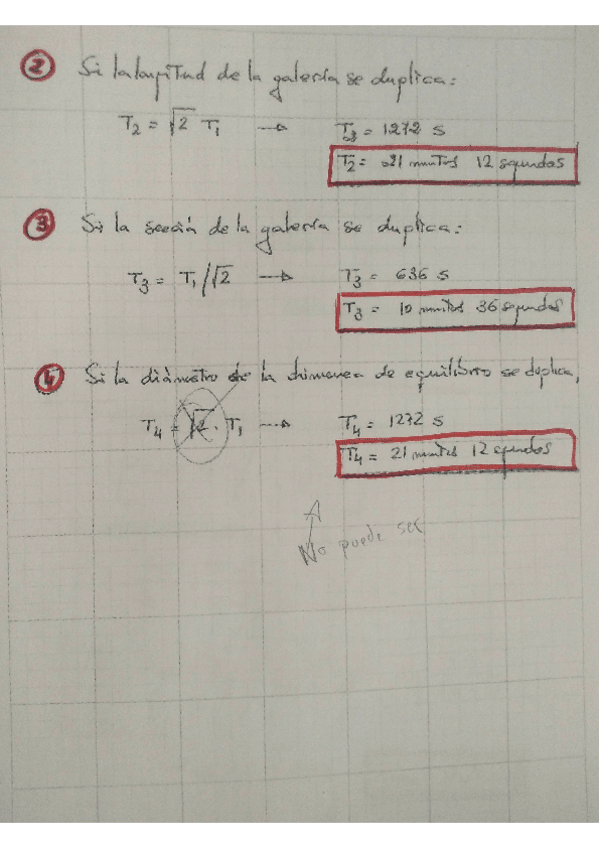 2 Si la longitud de la galería se duplica:
T2 = √2 T1 → T2 = 1272 s
T2 = 21 minutos 12 segundos
3 Si la sección de la galería se duplica:
T3 = T1/√2 → T3 = 636 s
T3 = 10 minutos 36 segundos
4 Si la diámetro de la chimenea de equilibrio se duplica,
T4 = √2 · T1 → T4 = 1272 s
T4 = 21 minutos 12 segundos
No puede ser